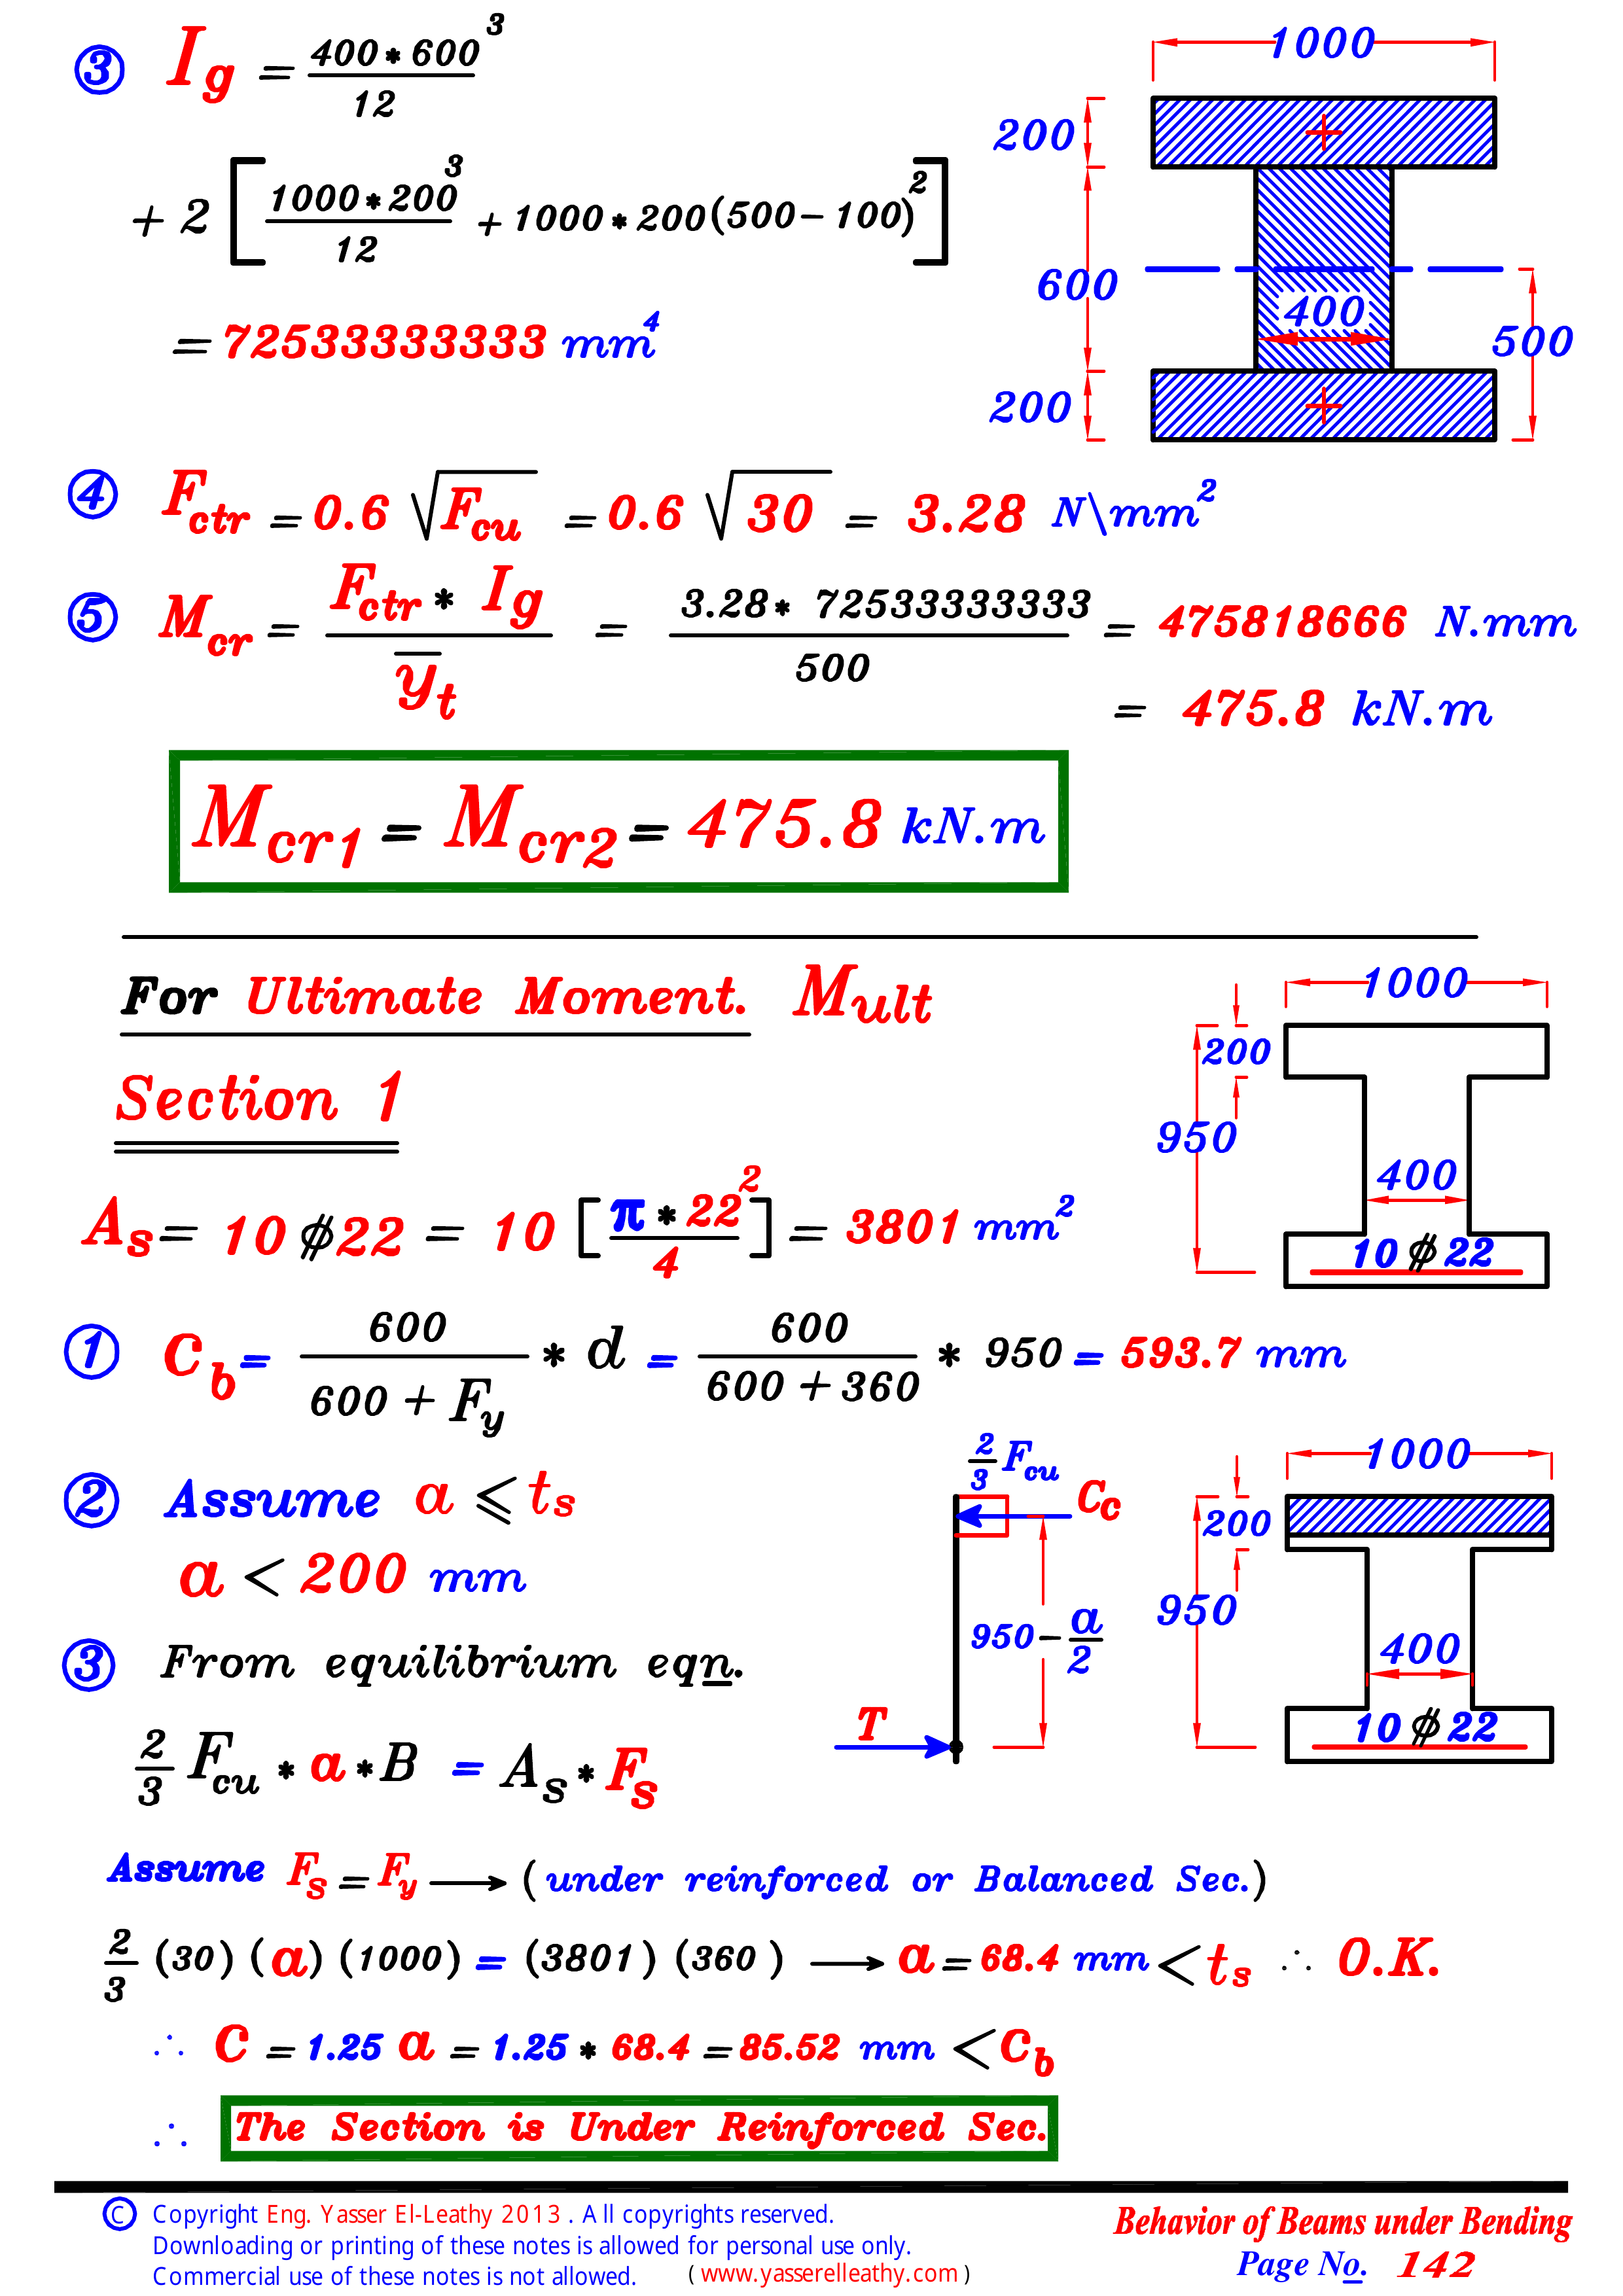 ③ I_g = 400 * 600³ / 12
1000
200
+ 2 [ 1000 * 200³ / 12 + 1000 * 200 (500 - 100)² ]
600
400
500
= 72533333333 mm⁴
200
④ F_ctr = 0.6 √F_cu = 0.6 √30 = 3.28 N\mm²
⑤ M_cr = F_ctr * I_g / y̅_t = 3.28 * 72533333333 / 500 = 475818666 N.mm
= 475.8 kN.m
M_cr1 = M_cr2 = 475.8 kN.m
For Ultimate Moment. M_ult
1000
200
Section 1
950
400
A_s = 10 ϕ 22 = 10 [ π * 22² / 4 ] = 3801 mm²
10 ϕ 22
① C_b = 600 / 600 + F_y * d = 600 / 600 + 360 * 950 = 593.7 mm
② Assume a ⩽ t_s
2/3 F_cu
C_c
1000
200
a < 200 mm
950 - a/2
950
③ From equilibrium eqn.
400
T
10 ϕ 22
2/3 F_cu * a * B = A_s * F_s
Assume F_s = F_y → ( under reinforced or Balanced Sec.)
2/3 (30) (a) (1000) = (3801) (360 ) → a = 68.4 mm < t_s ∴ O.K.
∴ C = 1.25 a = 1.25 * 68.4 = 85.52 mm < C_b
∴ The Section is Under Reinforced Sec.
© Copyright Eng. Yasser El-Leathy 2013 . All copyrights reserved.
Downloading or printing of these notes is allowed for personal use only.
Commercial use of these notes is not allowed. ( www.yasserelleathy.com )
Behavior of Beams under Bending
Page No. 142